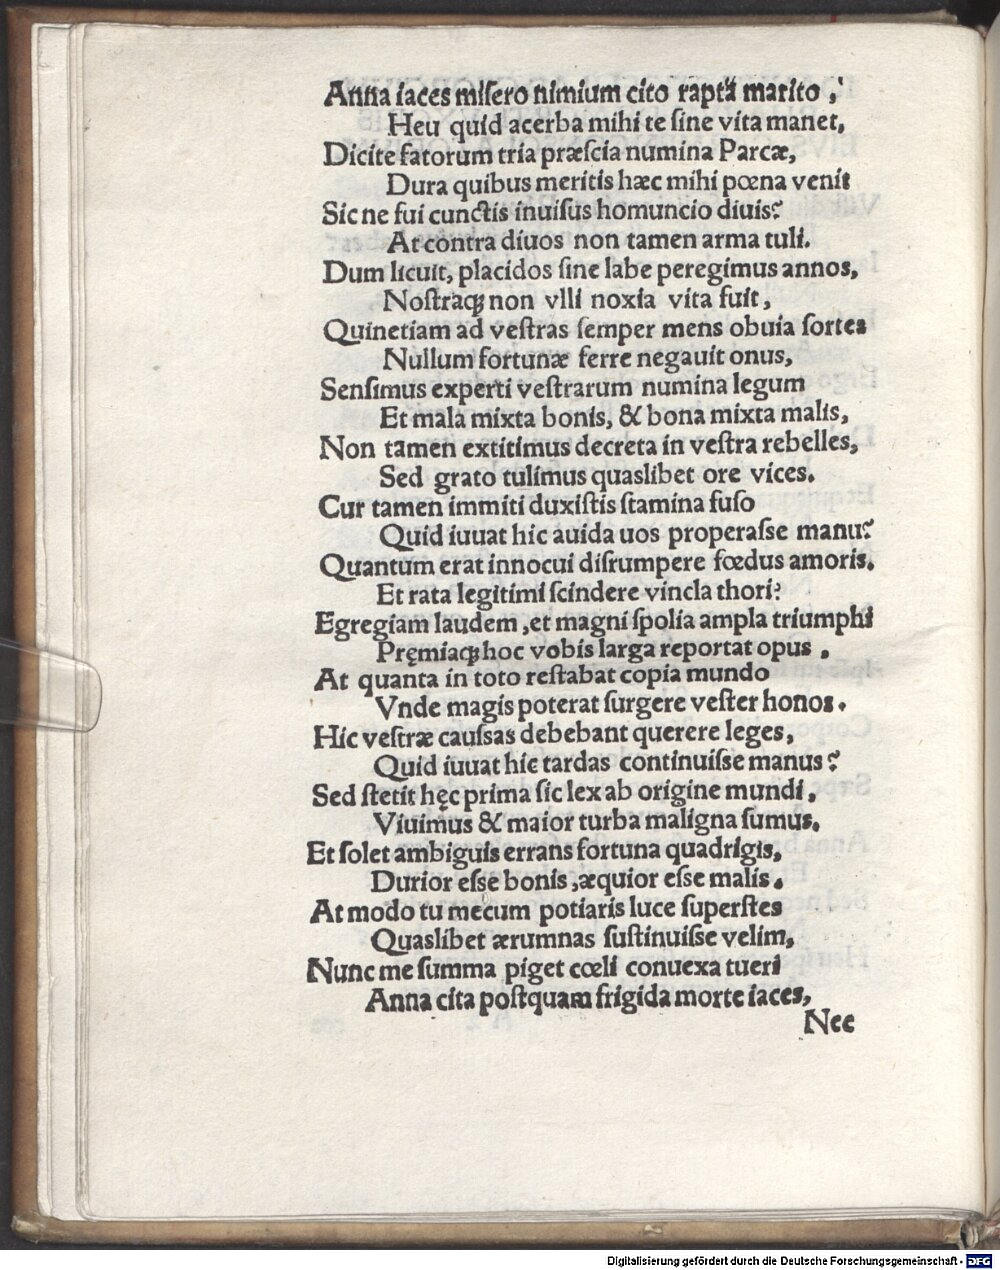 Anna iaces misero nimium cito rapta marito,
Heu quid acerba mihi te sine vita manet,
Dicite fatorum tria præscia numina Parcæ,
Dura quibus meritis hæc mihi pœna venit
Sic ne fui cunctis inuisus homuncio diuis?
At contra diuos non tamen arma tuli.
Dum licuit, placidos sine labe peregimus annos,
Nostraqꝫ non vlli noxia vita fuit,
Quinetiam ad vestras semper mens obuia sortes
Nullum fortunæ ferre negauit onus,
Sensimus experti vestrarum numina legum
Et mala mixta bonis, & bona mixta malis,
Non tamen extitimus decreta in vestra rebelles,
Sed grato tulimus quaslibet ore vices.
Cur tamen immiti duxistis stamina fuso
Quid iuuat hic auida uos properasse manu?
Quantum erat innocui disrumpere fœdus amoris.
Et rata legitimi scindere vincla thori?
Egregiam laudem, et magni spolia ampla triumphi
Pręmiaqꝫ hoc vobis larga reportat opus.
At quanta in toto restabat copia mundo
Vnde magis poterat surgere vester honos.
Hic vestræ caussas debebant querere leges,
Quid iuuat hic tardas continuisse manus?
Sed stetit hęc prima sic lex ab origine mundi,
Viuimus & maior turba maligna sumus.
Et solet ambiguis errans fortuna quadrigis,
Durior esse bonis, æquior esse malis.
At modo tu mecum potiaris luce superstes
Quaslibet ærumnas sustinuisse velim,
Nunc me summa piget cœli conuexa tueri
Anna cita postquam frigida morte iaces,
Nec
Digitalisierung gefördert durch die Deutsche Forschungsgemeinschaft - DFG